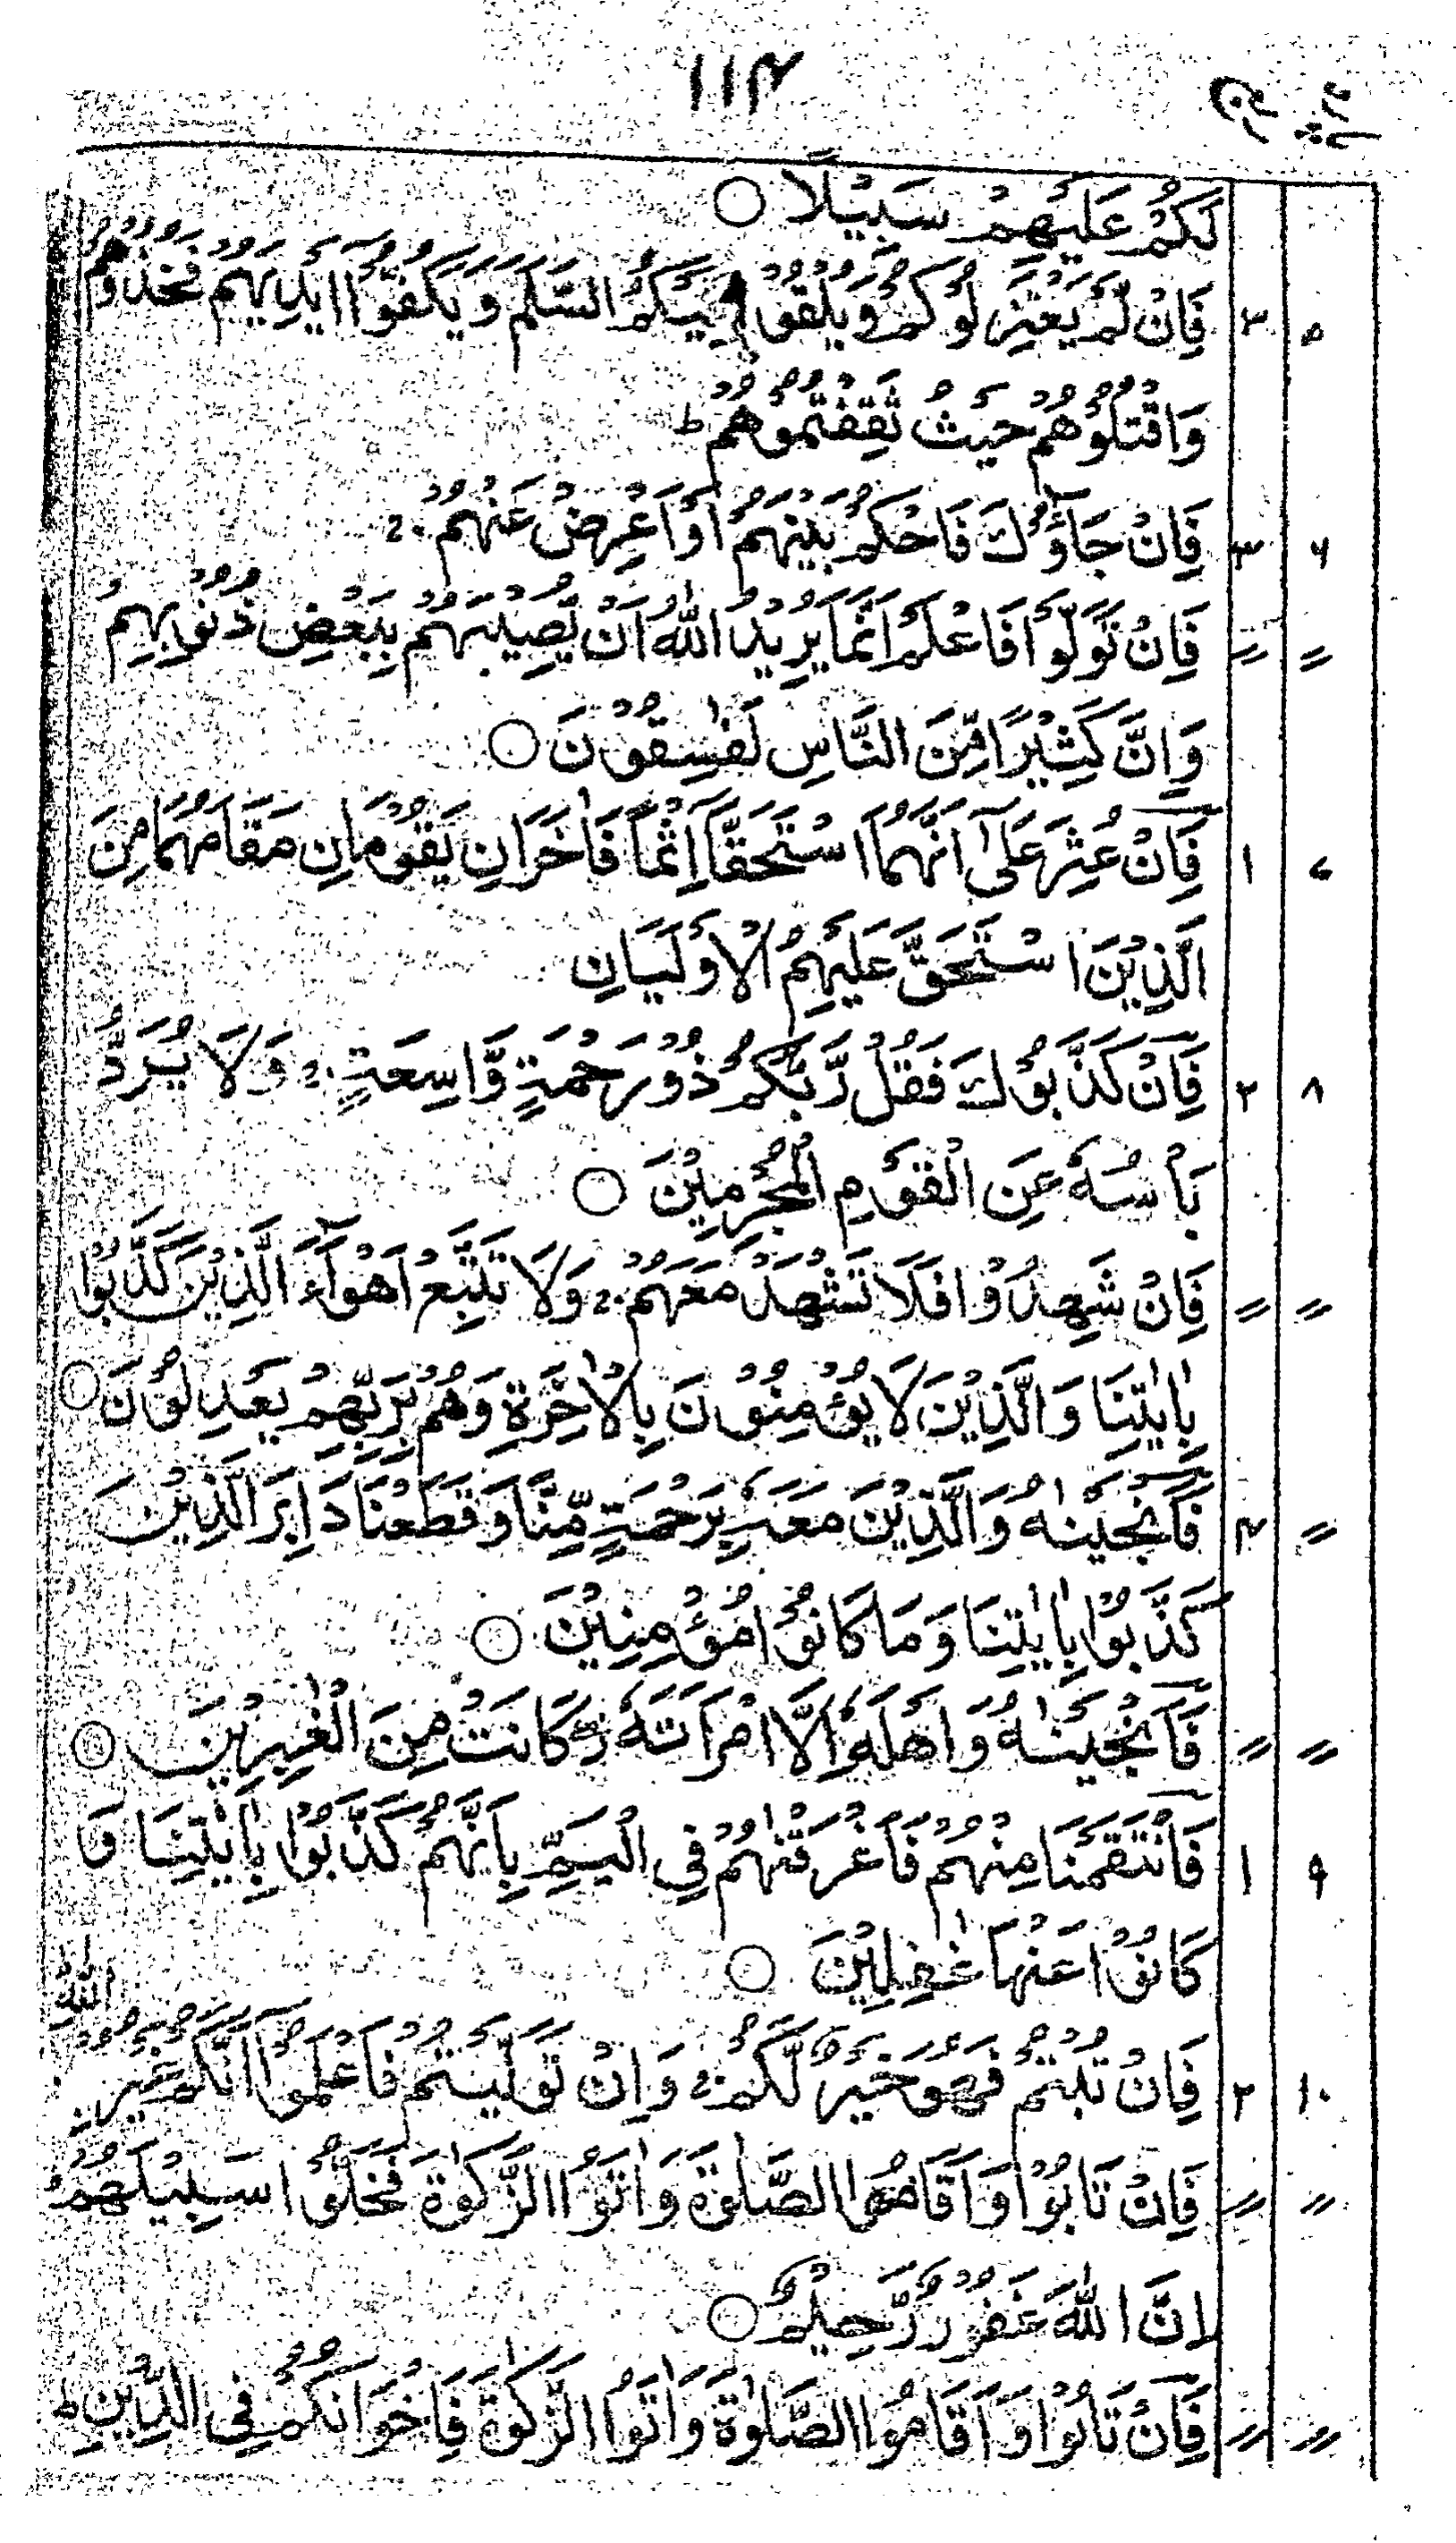 ۱۱۴
پارہ ربع
لَكُمْ عَلَيْهِمْ سَبِيْلًا ○
۵ ۳ فَاِنْ لَّمْ يَعْتَزِلُوْكُمْ وَيُلْقُوْٓا اِلَيْكُمُ السَّلَمَ وَيَكُفُّوْٓا اَيْدِيَهُمْ فَخُذُوْهُمْ
وَاقْتُلُوْهُمْ حَيْثُ ثَقِفْتُمُوْهُمْ ط
۶ ۳ فَاِنْ جَآءُوْكَ فَاحْكُمْ بَيْنَهُمْ اَوْ اَعْرِضْ عَنْهُمْ ج
〃 〃 فَاِنْ تَوَلَّوْا فَاعْلَمْ اَنَّمَا يُرِيْدُ اللّٰهُ اَنْ يُّصِيْبَهُمْ بِبَعْضِ ذُنُوْبِهِمْ
وَاِنَّ كَثِيْرًا مِّنَ النَّاسِ لَفٰسِقُوْنَ ○
۷ ۱ فَاِنْ عُثِرَ عَلٰٓى اَنَّهُمَا اسْتَحَقَّآ اِثْمًا فَاٰخَرَانِ يَقُوْمٰنِ مَقَامَهُمَا مِنَ
الَّذِيْنَ اسْتَحَقَّ عَلَيْهِمُ الْاَوْلَيَانِ
۸ ۲ فَاِنْ كَذَّبُوْكَ فَقُلْ رَّبُّكُمْ ذُوْ رَحْمَةٍ وَّاسِعَةٍ ج وَلَا يُرَدُّ
بَاْسُهٗ عَنِ الْقَوْمِ الْمُجْرِمِيْنَ ○
〃 〃 فَاِنْ شَهِدُوْا فَلَا تَشْهَدْ مَعَهُمْ ج وَلَا تَتَّبِعْ اَهْوَآءَ الَّذِيْنَ كَذَّبُوْا
بِاٰيٰتِنَا وَالَّذِيْنَ لَا يُؤْمِنُوْنَ بِالْاٰخِرَةِ وَهُمْ بِرَبِّهِمْ يَعْدِلُوْنَ ○
〃 ۴ فَاَنْجَيْنٰهُ وَالَّذِيْنَ مَعَهٗ بِرَحْمَةٍ مِّنَّا وَقَطَعْنَا دَابِرَ الَّذِيْنَ
كَذَّبُوْا بِاٰيٰتِنَا وَمَا كَانُوْا مُؤْمِنِيْنَ ○
〃 〃 فَاَنْجَيْنٰهُ وَاَهْلَهٗٓ اِلَّا امْرَاَتَهٗ ز كَانَتْ مِنَ الْغٰبِرِيْنَ ○
۹ ۱ فَانْتَقَمْنَا مِنْهُمْ فَاَغْرَقْنٰهُمْ فِى الْيَمِّ بِاَنَّهُمْ كَذَّبُوْا بِاٰيٰتِنَا وَ
كَانُوْا عَنْهَا غٰفِلِيْنَ ○
۱۰ ۲ فَاِنْ تُبْتُمْ فَهُوَ خَيْرٌ لَّكُمْ ج وَاِنْ تَوَلَّيْتُمْ فَاعْلَمُوْٓا اَنَّكُمْ غَيْرُ اللّٰهِ
〃 〃 فَاِنْ تَابُوْا وَاَقَامُوا الصَّلٰوةَ وَاٰتَوُا الزَّكٰوةَ فَخَلُّوْا سَبِيْلَهُمْ ط
اِنَّ اللّٰهَ غَفُوْرٌ رَّحِيْمٌ ○
〃 〃 فَاِنْ تَابُوْا وَاَقَامُوا الصَّلٰوةَ وَاٰتَوُا الزَّكٰوةَ فَاِخْوَانُكُمْ فِى الدِّيْنِ ط